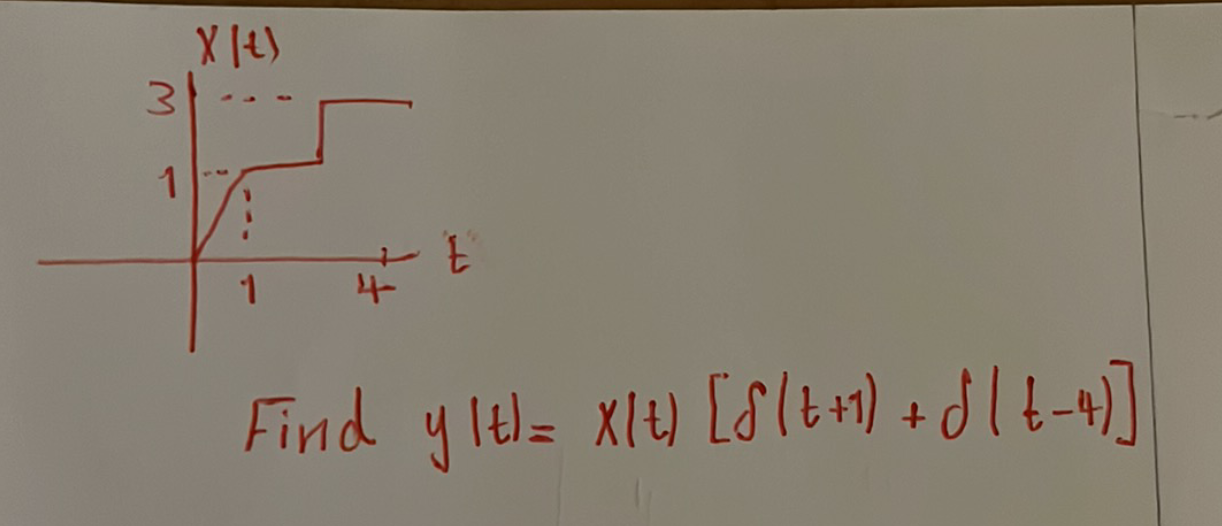 x(t)
3
1
t
1 4
Find y(t)= x(t) [δ(t+1) + δ(t-4)]